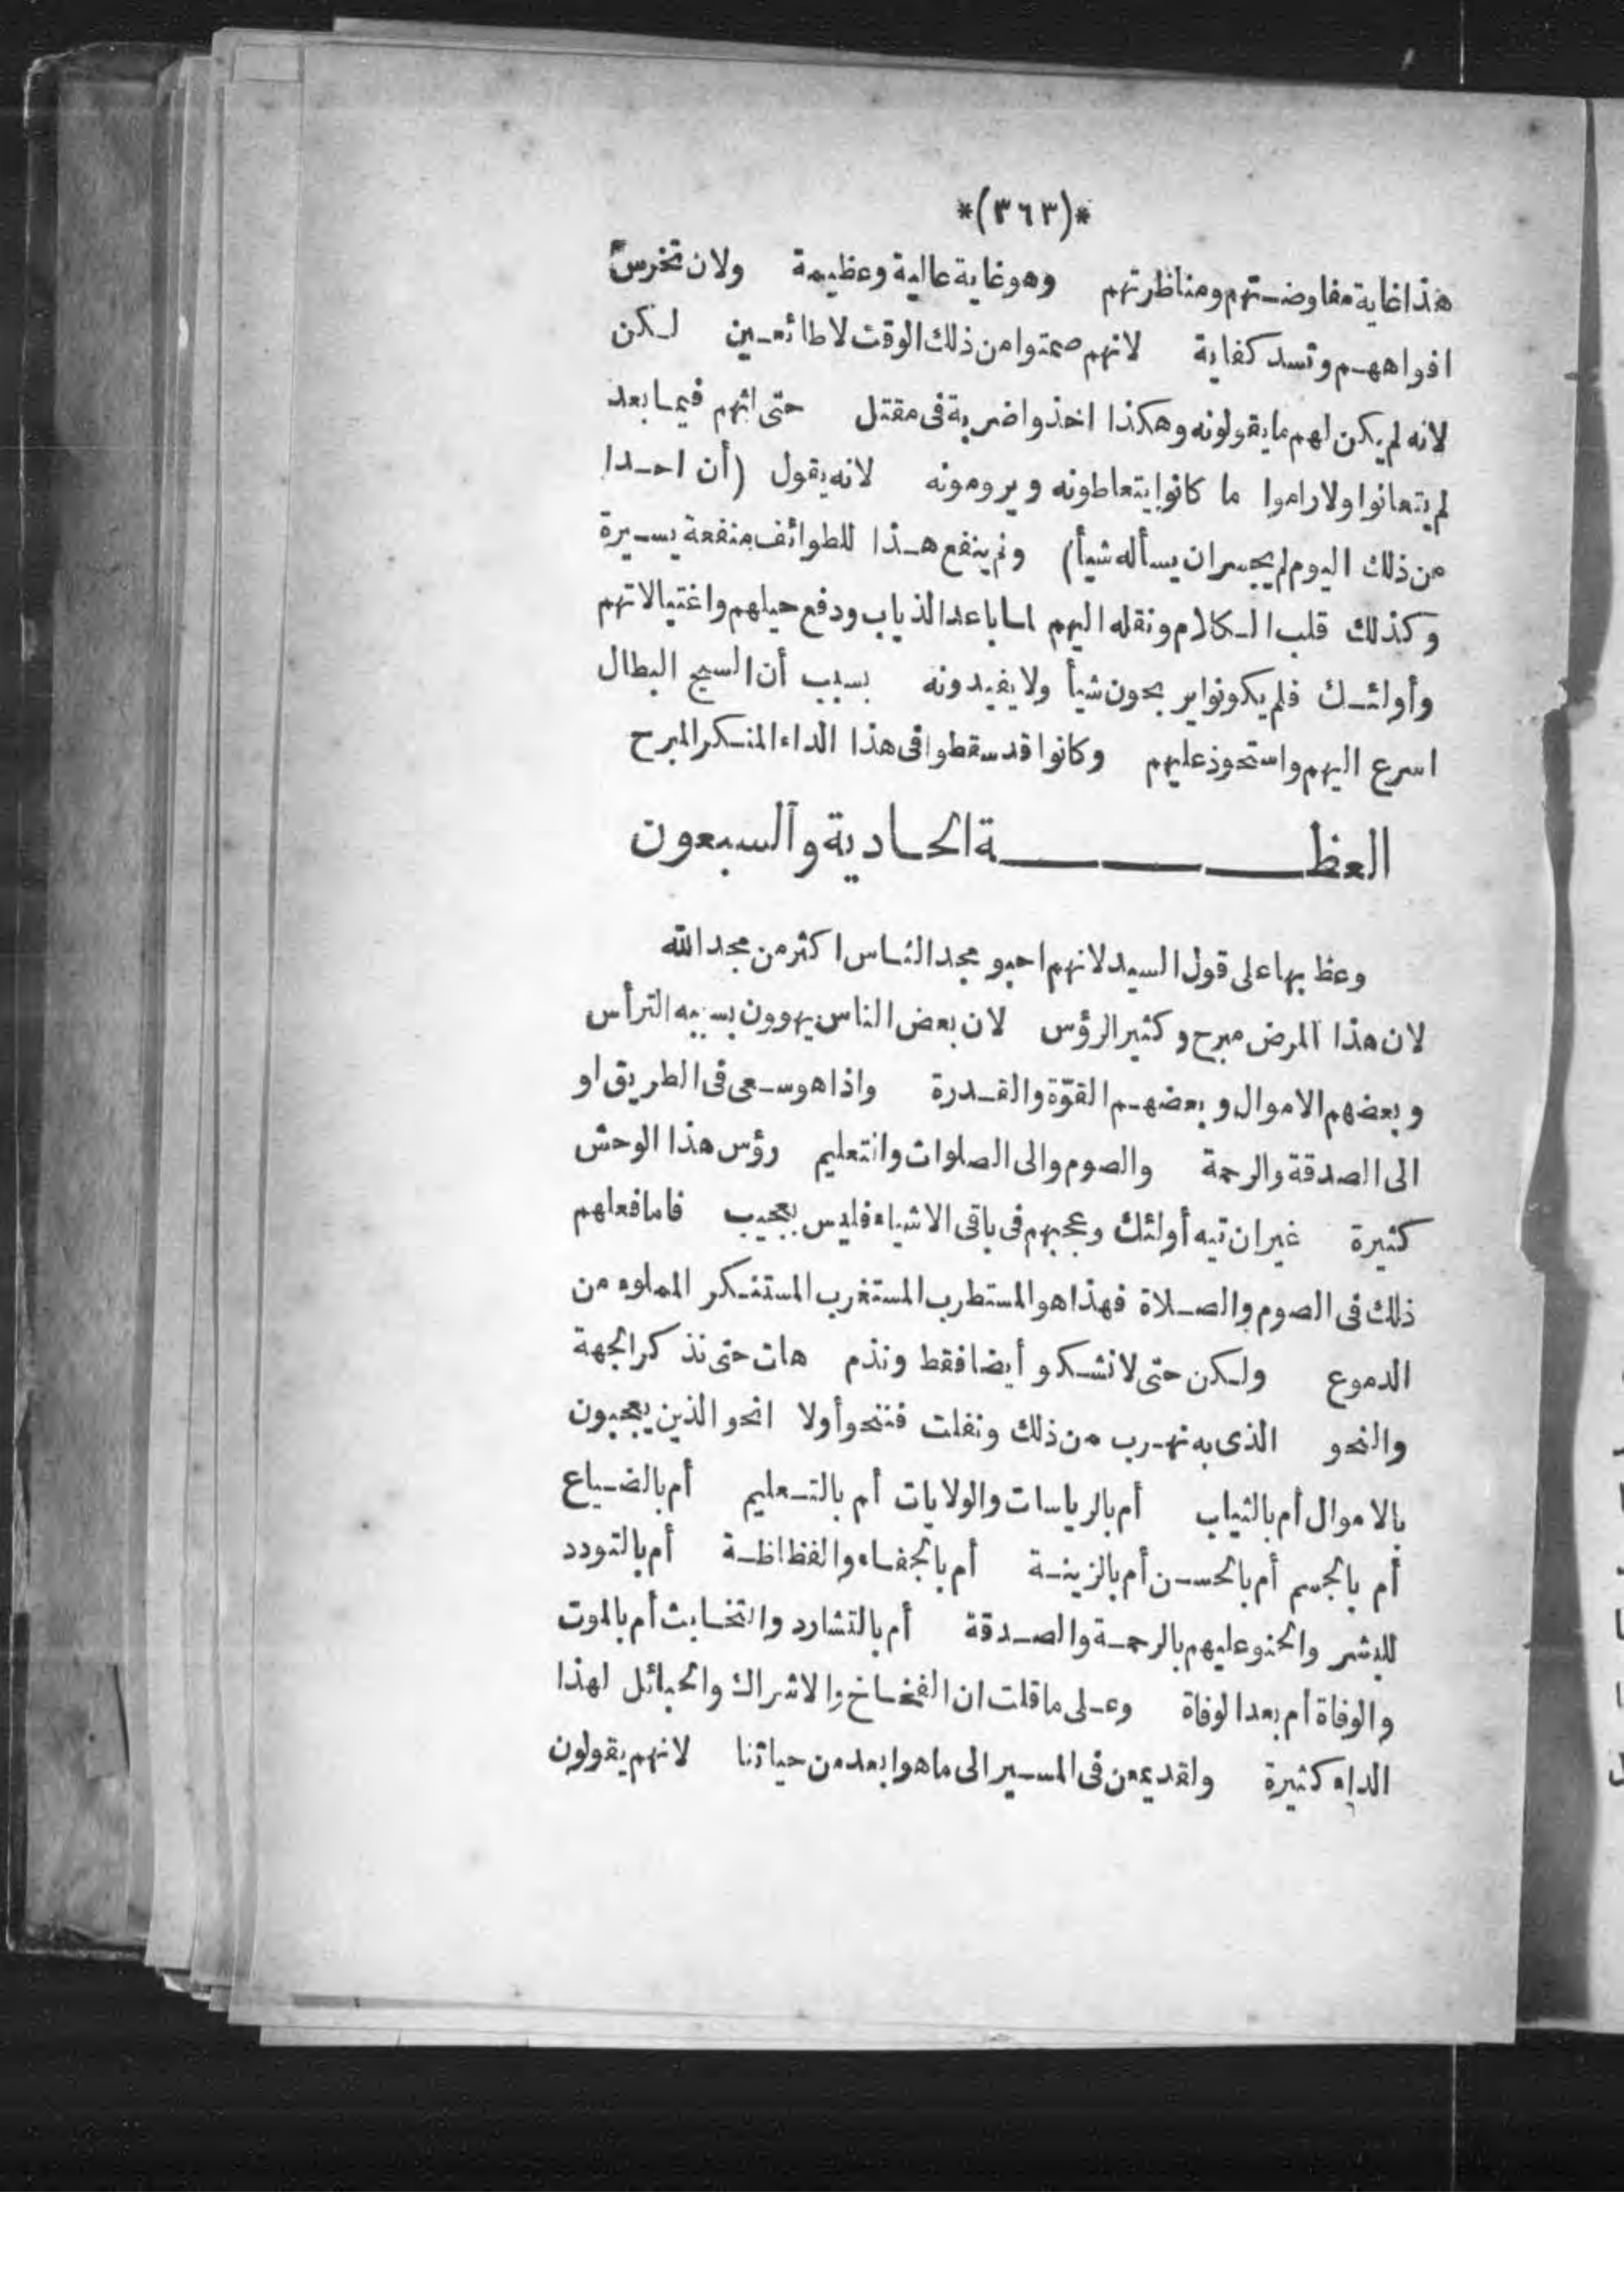 *(٣٦٣)*
هذا غاية مفاوضتهم ومناظرتهم وهو غاية عالية وعظيمة ولان تخرس
افواههم وتسد كفاية لانهم صمتوا من ذلك الوقت لا طائعين لكن
لانه لم يكن لهم ما يقولونه وهكذا اخذوا ضربة فى مقتل حتى انهم فيما بعد
لم يتعانوا ولا راموا ما كانوا يتعاطونه ويرومونه لانه يقول (أن احدا
من ذلك اليوم لم يجسر ان يسأله شيأ) ولم ينفع هذا للطوائف منفعة يسيرة
وكذلك قلب الكلام ونقله اليهم لما باعد الذياب ودفع حيلهم واغتيالاتهم
وأولئك فلم يكونوا يربحون شيأ ولا يفيدونه بسبب أن السبح البطال
اسرع اليهم واستحوذ عليهم وكانوا قد سقطوا فى هذا الداء المنكر المبرح
العظة الحادية والسبعون
وعظ بها على قول السيد لانهم احبو مجد الناس اكثر من مجد الله
لان هذا المرض مبرح وكثير الرؤس لان بعض الناس يهوون بسببه الترأس
وبعضهم الاموال وبعضهم القوّة والقدرة واذا هو سعى فى الطريق او
الى الصدقة والرحمة والصوم والى الصلوات والتعليم رؤس هذا الوحش
كثيرة غير ان تيه أولئك وعجبهم فى باقى الاشياء فليس بعجيب فاما فعلهم
ذلك فى الصوم والصلاة فهذا هو المستطرب المستغرب المستنكر المملوء من
الدموع ولكن حتى لا نشكو أيضا فقط ونذم هات حتى نذكر الجهة
والنحو الذى به نهرب من ذلك ونفلت فننحو أولا انحو الذين يعجبون
بالاموال أم بالثياب أم بالرياسات والولايات أم بالتعليم أم بالضياع
أم بالجسم أم بالحسن أم بالزينة أم بالجفاء والفظاظة أم بالتودد
للبشر والحنو عليهم بالرحمة والصدقة أم بالتشارد والتخابث أم بالموت
والوفاة أم بعد الوفاة وعلى ما قلت ان الفخاخ والاشراك والحبائل لهذا
الداء كثيرة ولقد يمعن فى المسير الى ما هو ابعد من حياتنا لانهم يقولون